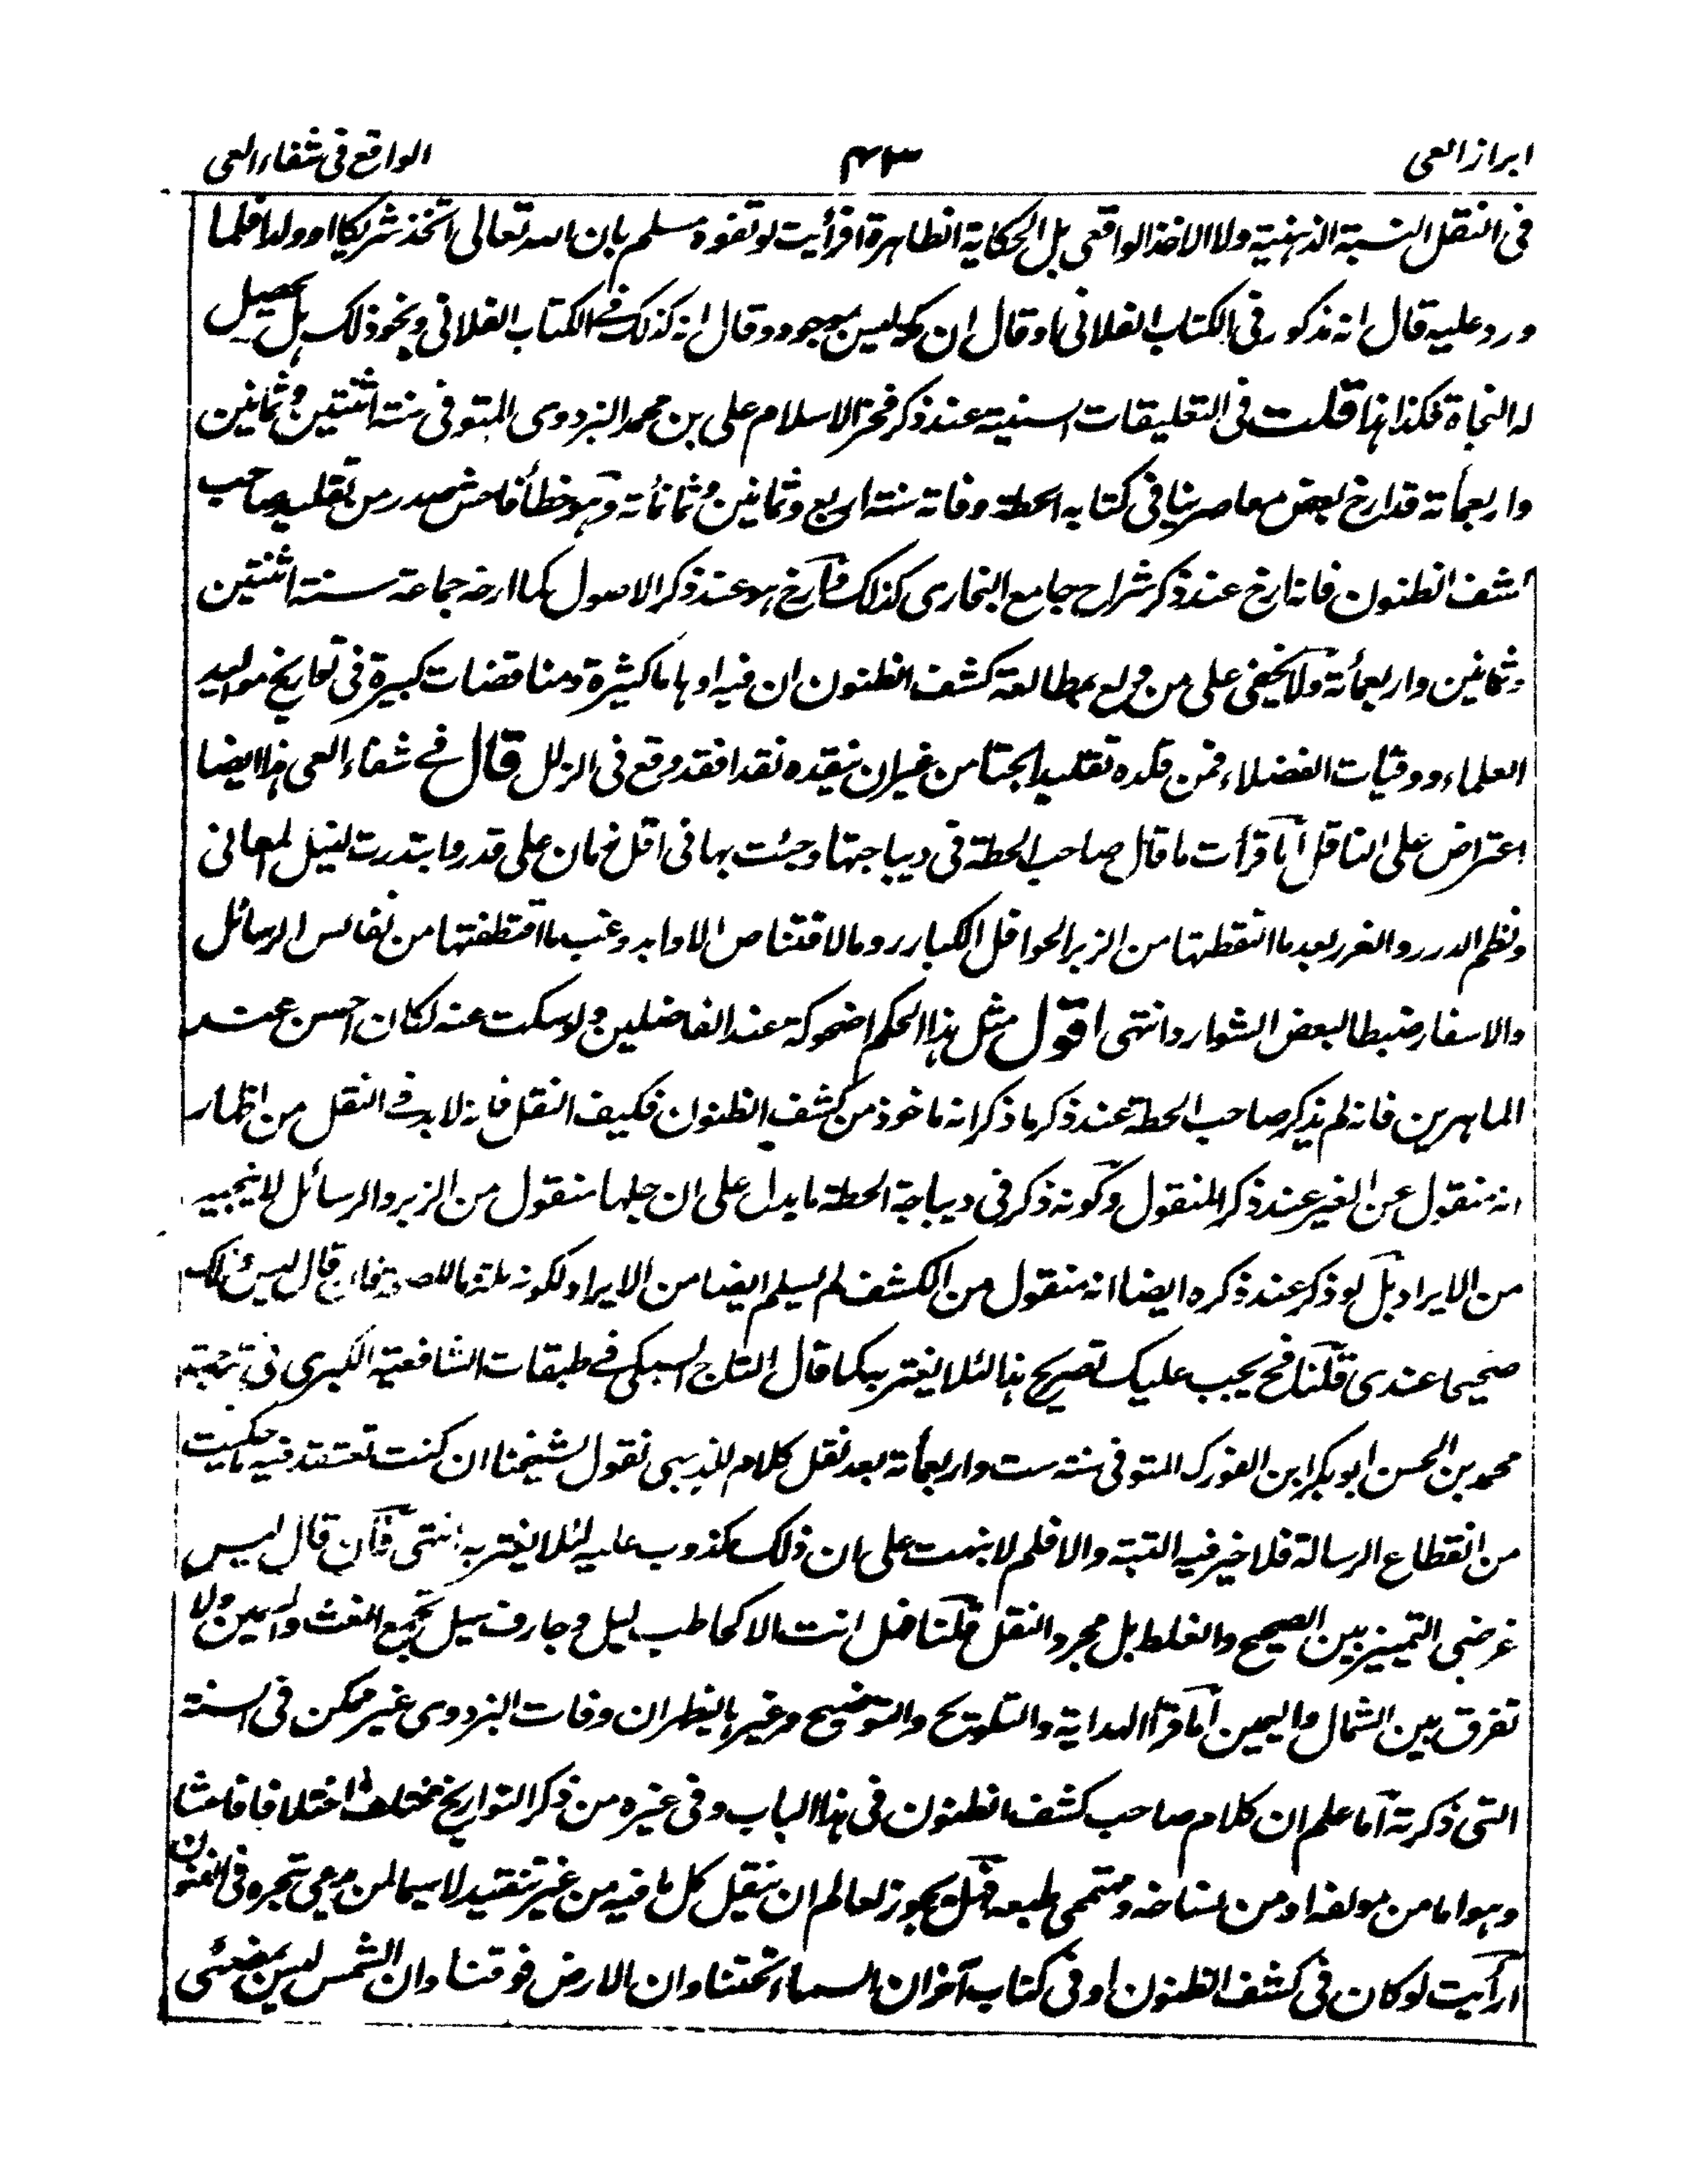 ابراز الغى ٤٣ الواقع فى شفاء العى
فى النقل النسبة الذهنية ولا الاخذ الواقعى بل الحكاية الظاهرة افرأيت لو تفوه مسلم بان الله تعالى اتخذ شريكا او ولدا فلما
ورد عليه قال انه مذكور فى الكتاب الفلانى او قال ان ليس بموجود وقال انه كذلك فى الكتاب الفلانى ونحو ذلك هل يحصيل
له النجاة فكذا هذا قلت فى التعليقات السنية عند ذكر فخر الاسلام على بن محمد البزدوى المتوفى سنة اثنتين وثمانين
واربعمأئة قد ارخ بعض معاصرينا فى كتابه الحطة وفاته سنة اربع وثمانين وثمانمأئة وهو خطأ فاحش صدر من تقليد صاحب
كشف الظنون فانه ارخ عند ذكر شراح جامع البخارى كذلك وأرخ هو عند ذكر الاصول كما ارخه جماعة سنة اثنتين
وثمانين واربعمأئة ولا يخفى على من ولع بمطالعة كشف الظنون ان فيه اوهاما كثيرة ومناقضات كبيرة فى تواريخ مواليد
العلماء ووفيات الفضلاء فمن قلده تقليدا بحتا من غير ان ينقده نقدا فقد وقع فى الزلل قال فى شفاء العى هذا ايضا
اعتراض على الناقل أما قرأت ما قال صاحب الحطة فى ديباجتها وجئت بها فى اقل زمان على قدر وابتدرت لنيل المعانى
ونظم الدرر والغرر بعد ما التقطتها من الزبر الحوافل الكبار روما لاقتناص الاوابد وغب ما اقتطفتها من نفائس الرسائل
والاسفار ضبطا لبعض الشوارد انتهى اقول مثل هذا الحكم اضحوكة عند الفاضلين ولو سكت عنه لكان احسن عند
الماهرين فانه لم يذكر صاحب الحطة عند ذكر ما ذكر انه ماخوذ من كشف الظنون فكيف النقل فانه لا بد فى النقل من اظهار
انه منقول عن الغير عند ذكر المنقول وكونه ذكر فى ديباجة الحطة ما يدل على ان جلها منقول من الزبر والرسائل لا ينجيه
من الايراد بل لو ذكر عند ذكره ايضا انه منقول من الكشف لم يسلم ايضا من الايراد لكونه ملتزما للصحة فان قال ليس ذلك
صحيحا عندى قلنا فح يجب عليك تصريح هذا لئلا يغتر بك كما قال التاج السبكى فى طبقات الشافعية الكبرى فى ترجمة
محمد بن الحسن ابو بكر ابن الفورك المتوفى سنة ست واربعمأئة بعد نقل كلام للذهبى نقول لشيخنا ان كنت تعتقد فيه ما حكيت
من انقطاع الرسالة فلا خير فيه البتة والا فلم لا نبهت على ان ذلك مكذوب عليه لئلا يغتر به انتهى فأن قال ليس
غرضى التمييز بين الصحيح والغلط بل مجرد النقل قلنا فهل انت الا كحاطب ليل وجارف سيل تجمع الغث والسمين ولا
تفرق بين الشمال واليمين أما قرأ الهداية والتلويح والتوضيح وغيرها ليظهر ان وفات البزدوى غير ممكن فى السنة
التى ذكرته أما علم ان كلام صاحب كشف الظنون فى هذا الباب وفى غيره من ذكر التواريخ مختلف اختلافا فاحشا
وهو اما من مولفه او من نساخه ومهتمى طبعه فهل يجوز لعالم ان ينقل كل ما فيه من غير تنقيد لا سيما لمن يدعى تبحره فى الفنون
ارأيت لو كان فى كشف الظنون او فى كتاب آخر ان السماء تحتنا وان الارض فوقنا وان الشمس ليس بمضئى